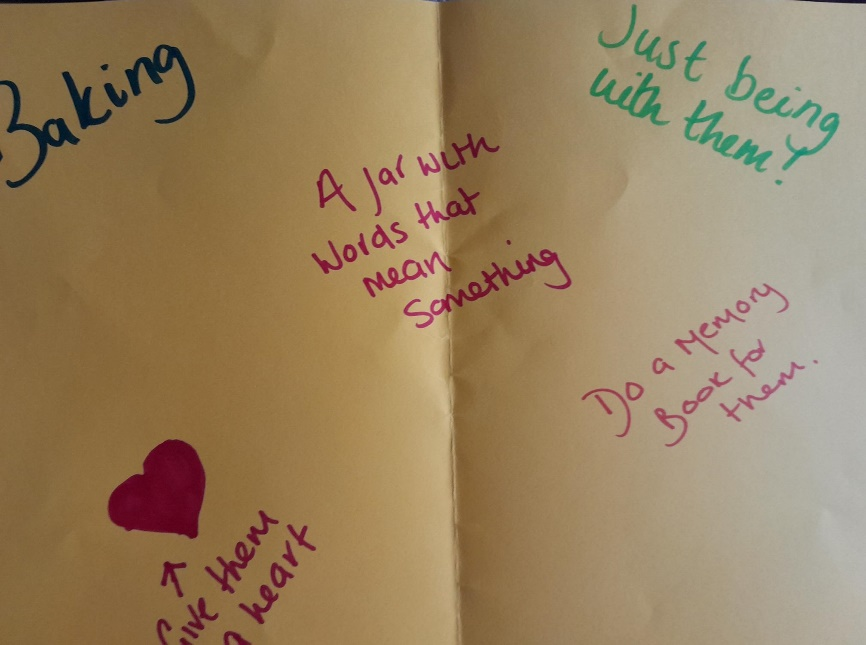 Baking
Just being
with them!
A Jar with
Words that
mean
Something
Do a Memory
Book for
them.
Give them
a heart